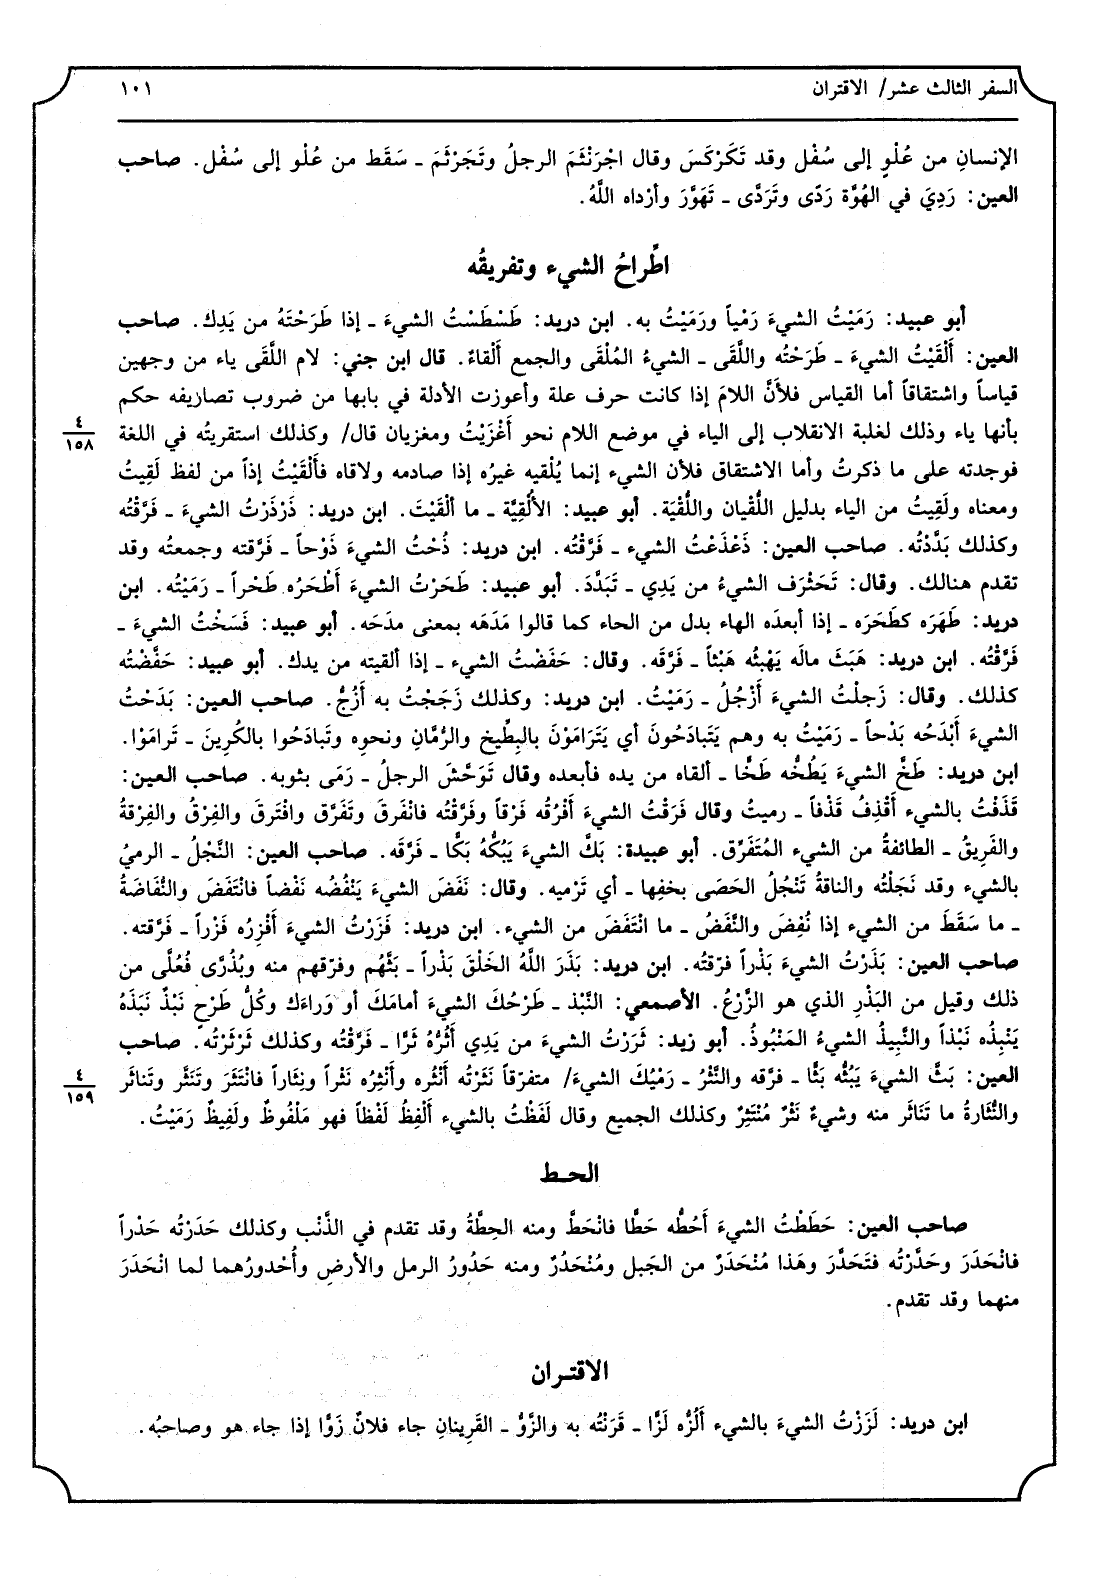 السفر الثالث عشر/ الاقتران
١٠١
الإنسانِ من عُلْوٍ إلى سُفْل وقد تَكَرْكَسَ وقال اجْرَنْثَمَ الرجلُ وتَجَرْثَمَ ـ سَقَط من عُلْو إلى سُفْل. صاحب
العين: رَدِيَ في الهُوَّة رَدًى وتَرَدَّى ـ تَهَوَّرَ وأرْداه اللَّهُ.
اطِّراحُ الشيء وتفريقُه
أبو عبيد: رَمَيْتُ الشيءَ رَمْياً ورَمَيْتُ به. ابن دريد: طَسْطَسْتُ الشيءَ ـ إذا طَرَحْتَهُ من يَدِك. صاحب
العين: أَلْقَيْتُ الشيءَ ـ طَرَحْتُه واللَّقَى ـ الشيءُ المُلْقَى والجمع أَلْقاءٌ. قال ابن جني: لام اللَّقَى ياء من وجهين
قياساً واشتقاقاً أما القياس فلأنَّ اللامَ إذا كانت حرف علة وأعوزت الأدلة في بابها من ضروب تصاريفه حكم
بأنها ياء وذلك لغلبة الانقلاب إلى الياء في موضع اللام نحو أَغْزَيْتُ ومغزيان قال/ وكذلك استقريتُه في اللغة
٤
١٥٨
فوجدته على ما ذكرتُ وأما الاشتقاق فلأن الشيء إنما يُلْقيه غيرُه إذا صادمه ولاقاه فأَلْقَيْتُ إذاً من لفظ لَقِيتُ
ومعناه ولَقِيتُ من الياء بدليل اللُّقْيان واللُّقْيَة. أبو عبيد: الأُلْقِيَّة ـ ما ألْقَيْتَ. ابن دريد: ذَرْذَرْتُ الشيءَ ـ فَرَّقْتُه
وكذلك بَدَّدْتُه. صاحب العين: ذَعْذَعْتُ الشيء ـ فَرَّقْتُه. ابن دريد: ذُحْتُ الشيءَ ذَوْحاً ـ فَرَّقته وجمعته وقد
تقدم هنالك. وقال: تَحَثْرَف الشيءُ من يَدِي ـ تَبَدَّدَ. أبو عبيد: طَحَرْتُ الشيءَ أَطْحَرُه طَحْراً ـ رَمَيْتُه. ابن
دريد: طَهَرَه كطَحَرَه ـ إذا أبعدَه الهاء بدل من الحاء كما قالوا مَدَهَه بمعنى مدَحَه. أبو عبيد: فَسَخْتُ الشيءَ ـ
فَرَّقْتُه. ابن دريد: هَبَثَ مالَه يَهْبِثُه هَبْثاً ـ فَرَّقَه. وقال: حَفَضْتُ الشيء ـ إذا ألقيته من يدك. أبو عبيد: حَفَّضْتُه
كذلك. وقال: زَجلْتُ الشيءَ أَزْجُلُ ـ رَمَيْتُ. ابن دريد: وكذلك زَجَجْتُ به أَزُجُّ. صاحب العين: بَدَحْتُ
الشيءَ أَبْدَحُه بَدْحاً ـ رَمَيْتُ به وهم يَتَبادَحُونَ أي يَتَرَامَوْنَ بالبِطِّيخ والرُّمَّانِ ونحوِه وتَبادَحُوا بالكُرِينَ ـ تَرامَوْا.
ابن دريد: طَخَّ الشيءَ يَطُخُّه طَخًّا ـ ألقاه من يده فأبعده وقال تَوَحَّشَ الرجلُ ـ رَمَى بثوبه. صاحب العين:
قَذَفْتُ بالشيء أَقْذِفُ قَذْفاً ـ رميتُ وقال فَرَقْتُ الشيءَ أَفْرُقُه فَرْقاً وفَرَّقْتُه فانْفَرقَ وتَفَرَّق وافْتَرقَ والفِرْقُ والفِرْقةُ
والفَرِيقُ ـ الطائفةُ من الشيء المُتَفَرِّق. أبو عبيدة: بَكَّ الشيءَ يَبُكُّهُ بَكًّا ـ فَرَّقَه. صاحب العين: النَّجْلُ ـ الرميُ
بالشيء وقد نَجَلْتُه والناقةُ تَنْجُلُ الحَصَى بخفِها ـ أي تَرْمِيه. وقال: نَفَضَ الشيءَ يَنْفُضُه نَفْضاً فانْتَفَضَ والنُّفَاضَةُ
ـ ما سَقَطَ من الشيء إذا نُفِضَ والنَّفَضُ ـ ما انْتَفَضَ من الشيء. ابن دريد: فَزَرْتُ الشيءَ أَفْزِرُه فَزْراً ـ فَرَّقته.
صاحب العين: بَذَرْتُ الشيءَ بَذْراً فرّقتُه. ابن دريد: بَذَرَ اللَّهُ الخَلْقَ بَذْراً ـ بَثَّهُم وفرّقهم منه وبُذُرَّى فُعُلَّى من
ذلك وقيل من البَذْرِ الذي هو الزَّرْعُ. الأصمعي: النَّبْذ ـ طَرْحُكَ الشيءَ أمامَكَ أو وَراءَك وكُلُّ طَرْحٍ نَبْذٌ نَبَذَهُ
يَنْبِذُه نَبْذاً والنَّبِيذُ الشيءُ المَنْبُوذُ. أبو زيد: ثَرَرْتُ الشيءَ من يَدِي أَثُرُّهُ ثَرًّا ـ فَرَّقْتُه وكذلك ثَرْثَرْتُه. صاحب
العين: بَثَّ الشيءَ يَبُثُّه بَثًّا ـ فرّقه والنَّثْرُ ـ رَمْيُكَ الشيءَ/ متفرّقاً نَثَرْتُه أَنْثُره وأَنْثِرُه نَثْراً ونِثَاراً فانْتَثَرَ وتَنَثَّر وتَناثَر
٤
١٥٩
والنُّثَارةُ ما تَنَاثَر منه وشيءٌ نَثْرٌ مُنْتَثِرٌ وكذلك الجميع وقال لَفَظْتُ بالشيء أَلْفِظُ لَفْظاً فهو مَلْفُوظٌ ولَفِيظٌ رَمَيْتُ.
الحـط
صاحب العين: حَطَطْتُ الشيءَ أَحُطُّه حَطًّا فانْحَطَّ ومنه الحِطَّةُ وقد تقدم في الذَّنْب وكذلك حَدَرْتُه حَدْراً
فانْحَدَرَ وحَدَّرْتُه فتَحَدَّرَ وهَذا مُنْحَدَرٌ من الجَبل ومُنْحَدُرٌ ومنه حَدُورُ الرمل والأرضِ وأُحْدورُهما لما انْحَدَرَ
منهما وقد تقدم.
الاقتـران
ابن دريد: لَزَزْتُ الشيءَ بالشيء أَلُزُّه لَزًّا ـ قَرَنْتُه به والزَّوُّ ـ القَرِينانِ جاء فلانٌ زَوًّا إذا جاء هو وصاحبُه.